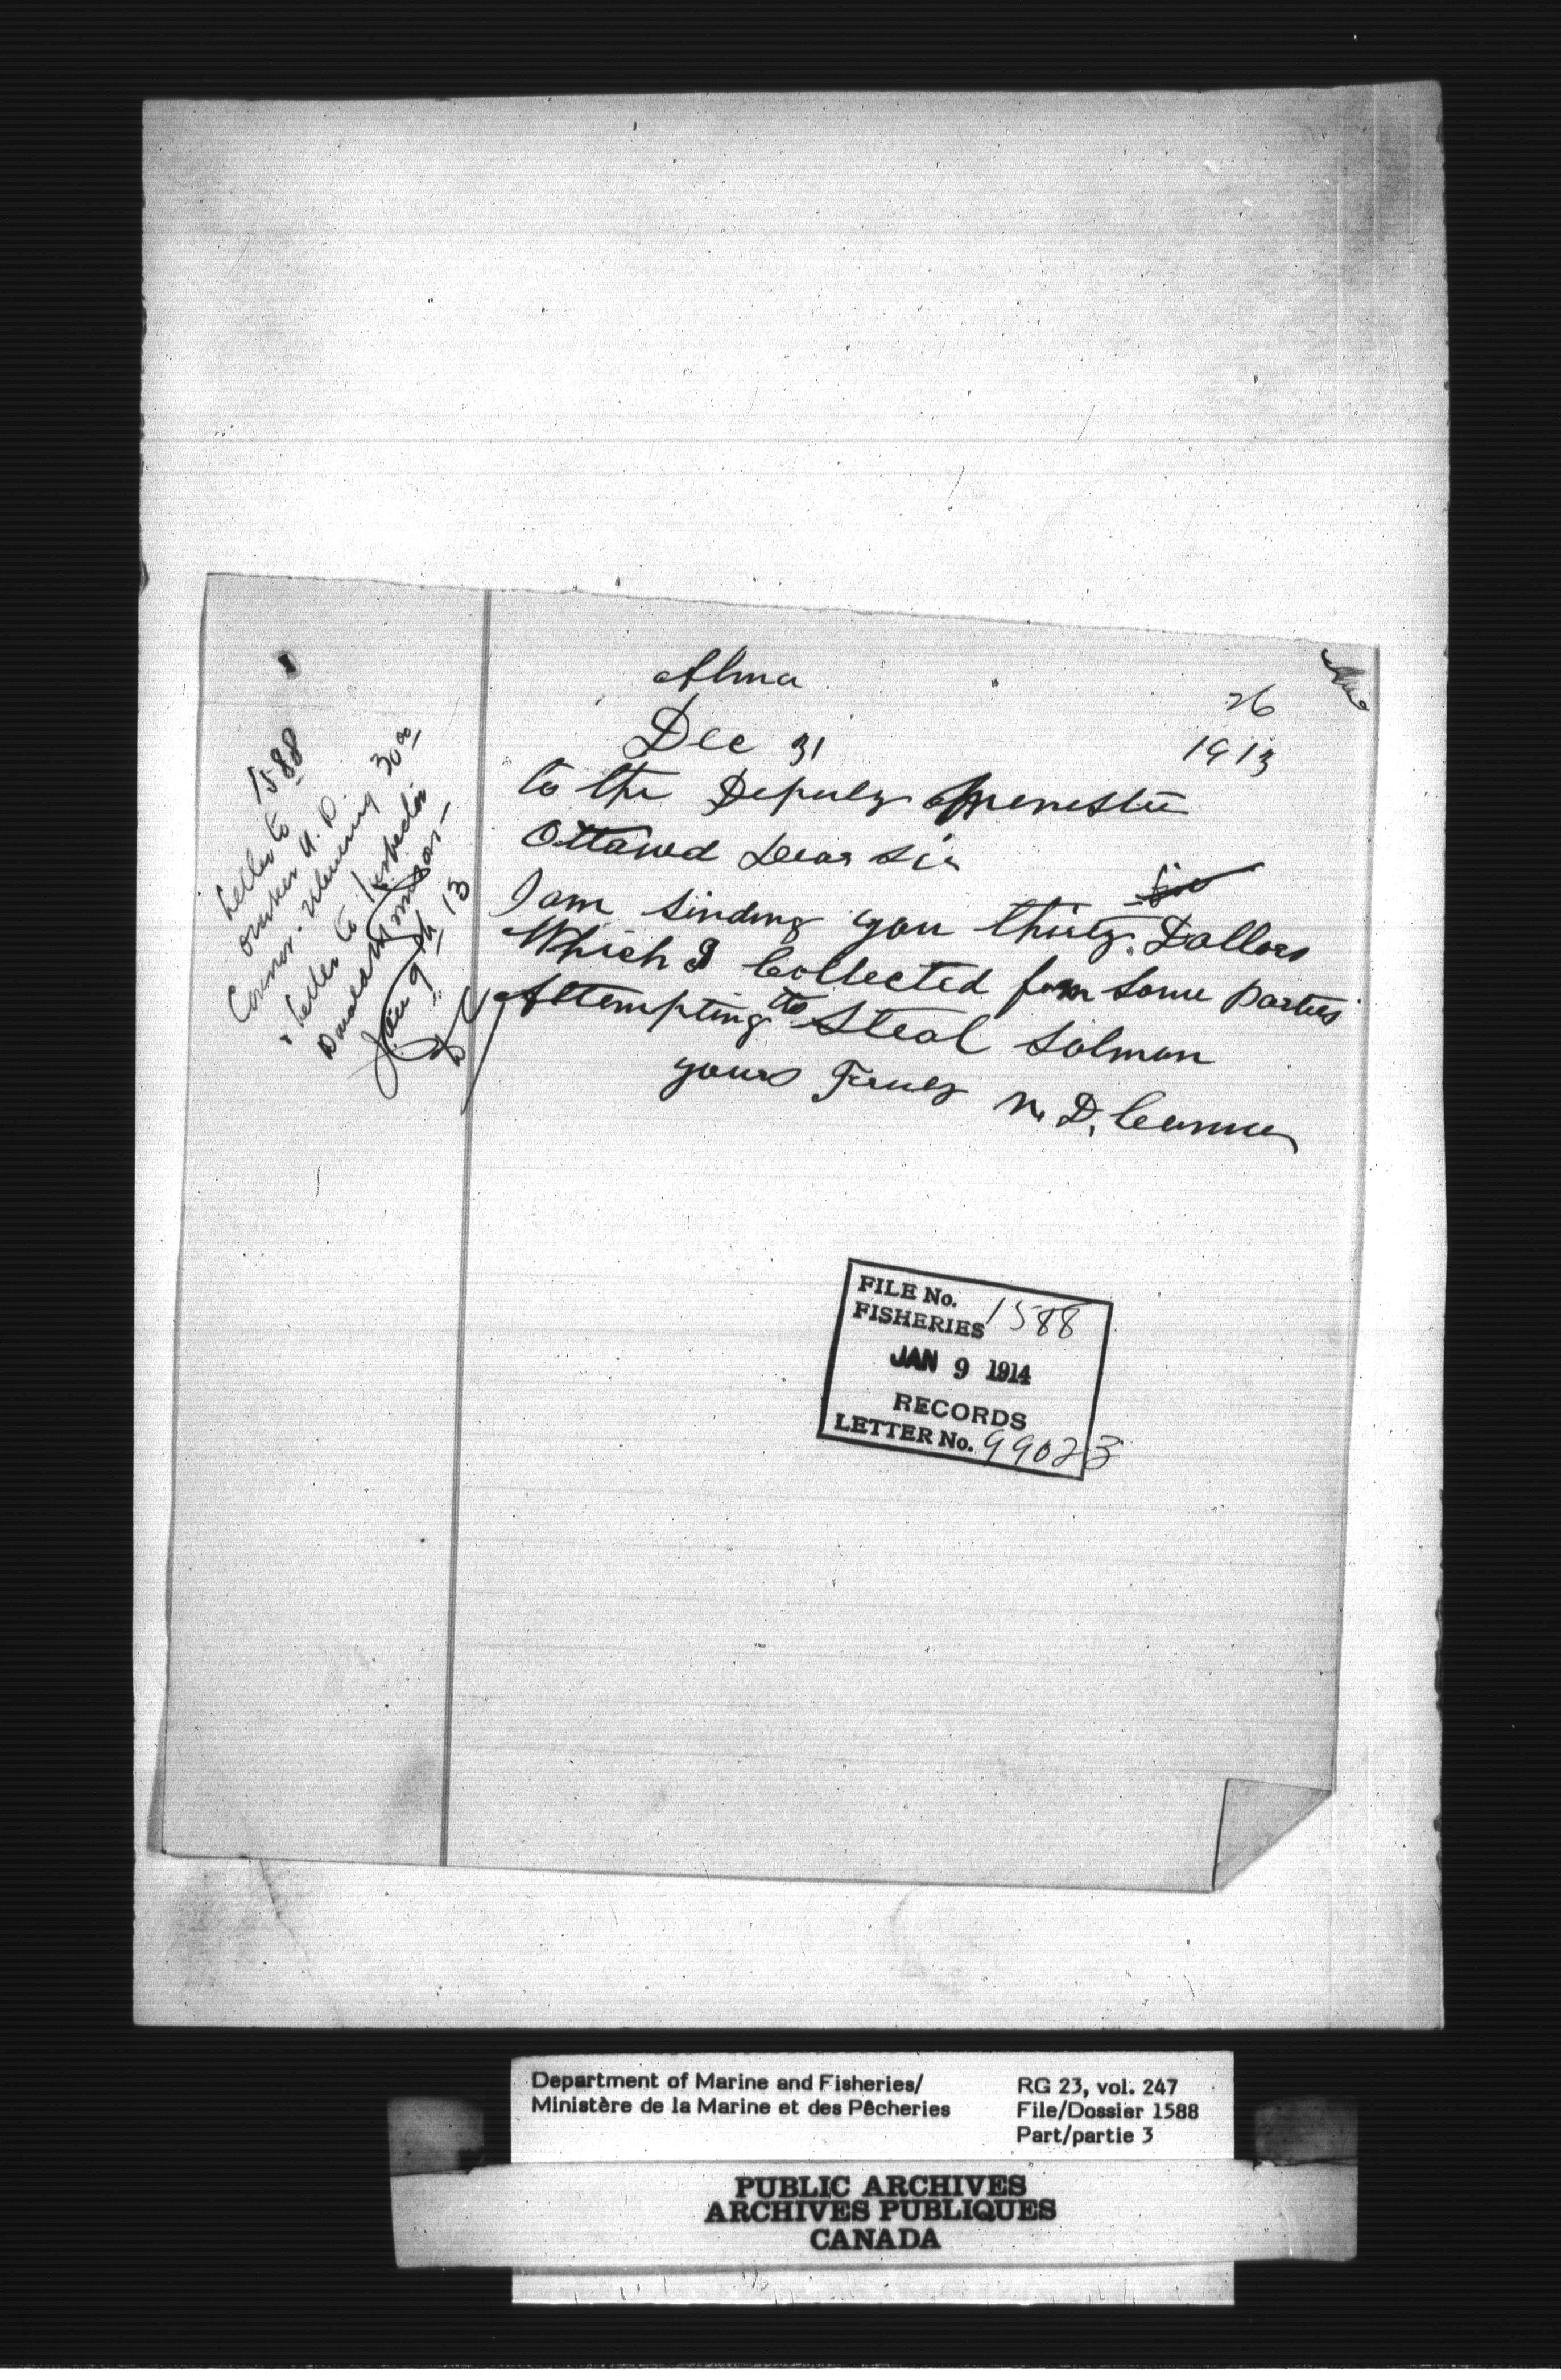 Alma
26
Dec 31 1913
to the Deputy Menester
Ottawa Dear Sir
five
I am sending you thirty Dollars
Which I Collected from Some parties
Attempting to Steal Salmon
yours Truly N. D. Connor
1588
Letter to
Overseer N. D.
Connor. returning 30 00
Letter to Inspector
Donald Morrison -
Jan 9th 13
FILE No.
FISHERIES 1588
JAN 9 1914
RECORDS
LETTER No. 99023
Department of Marine and Fisheries/
Ministère de la Marine et des Pêcheries
RG 23, vol. 247
File/Dossier 1588
Part/partie 3
PUBLIC ARCHIVES
ARCHIVES PUBLIQUES
CANADA